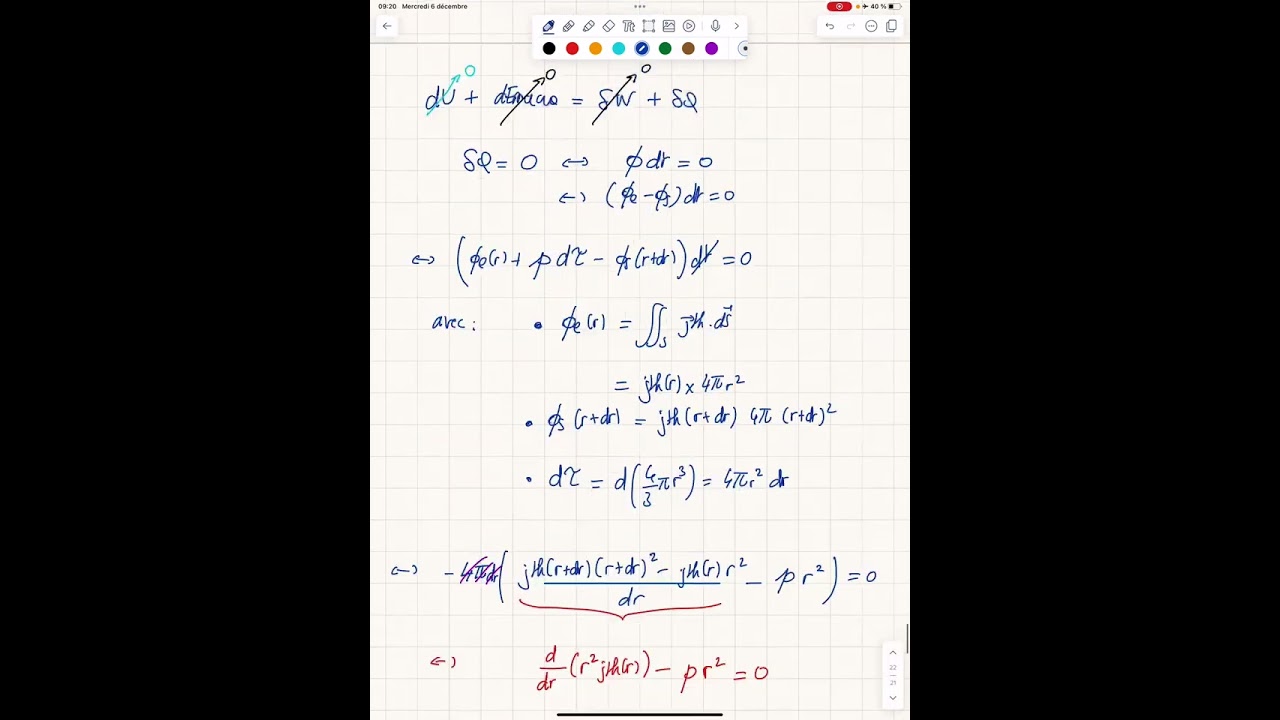 09:20 Mercredi 6 décembre 40 %
dU⁰ + dEmacro⁰ = δW⁰ + δQ
δQ = 0 ↔ ϕ dt = 0
↔ (ϕe - ϕs) dt = 0
↔ (ϕe(r) + p dτ - ϕs(r+dr)) dt = 0
avec : • ϕe(r) = ∬s jth . dS
= jth(r) × 4πr²
• ϕs (r+dr) = jth(r+dr) 4π (r+dr)²
• dτ = d(4/3 πr³) = 4πr² dr
↔ - 4πdr ( (jth(r+dr)(r+dr)² - jth(r) r²)/dr - p r² ) = 0
↔ d/dr (r² jth(r)) - p r² = 0
22
21